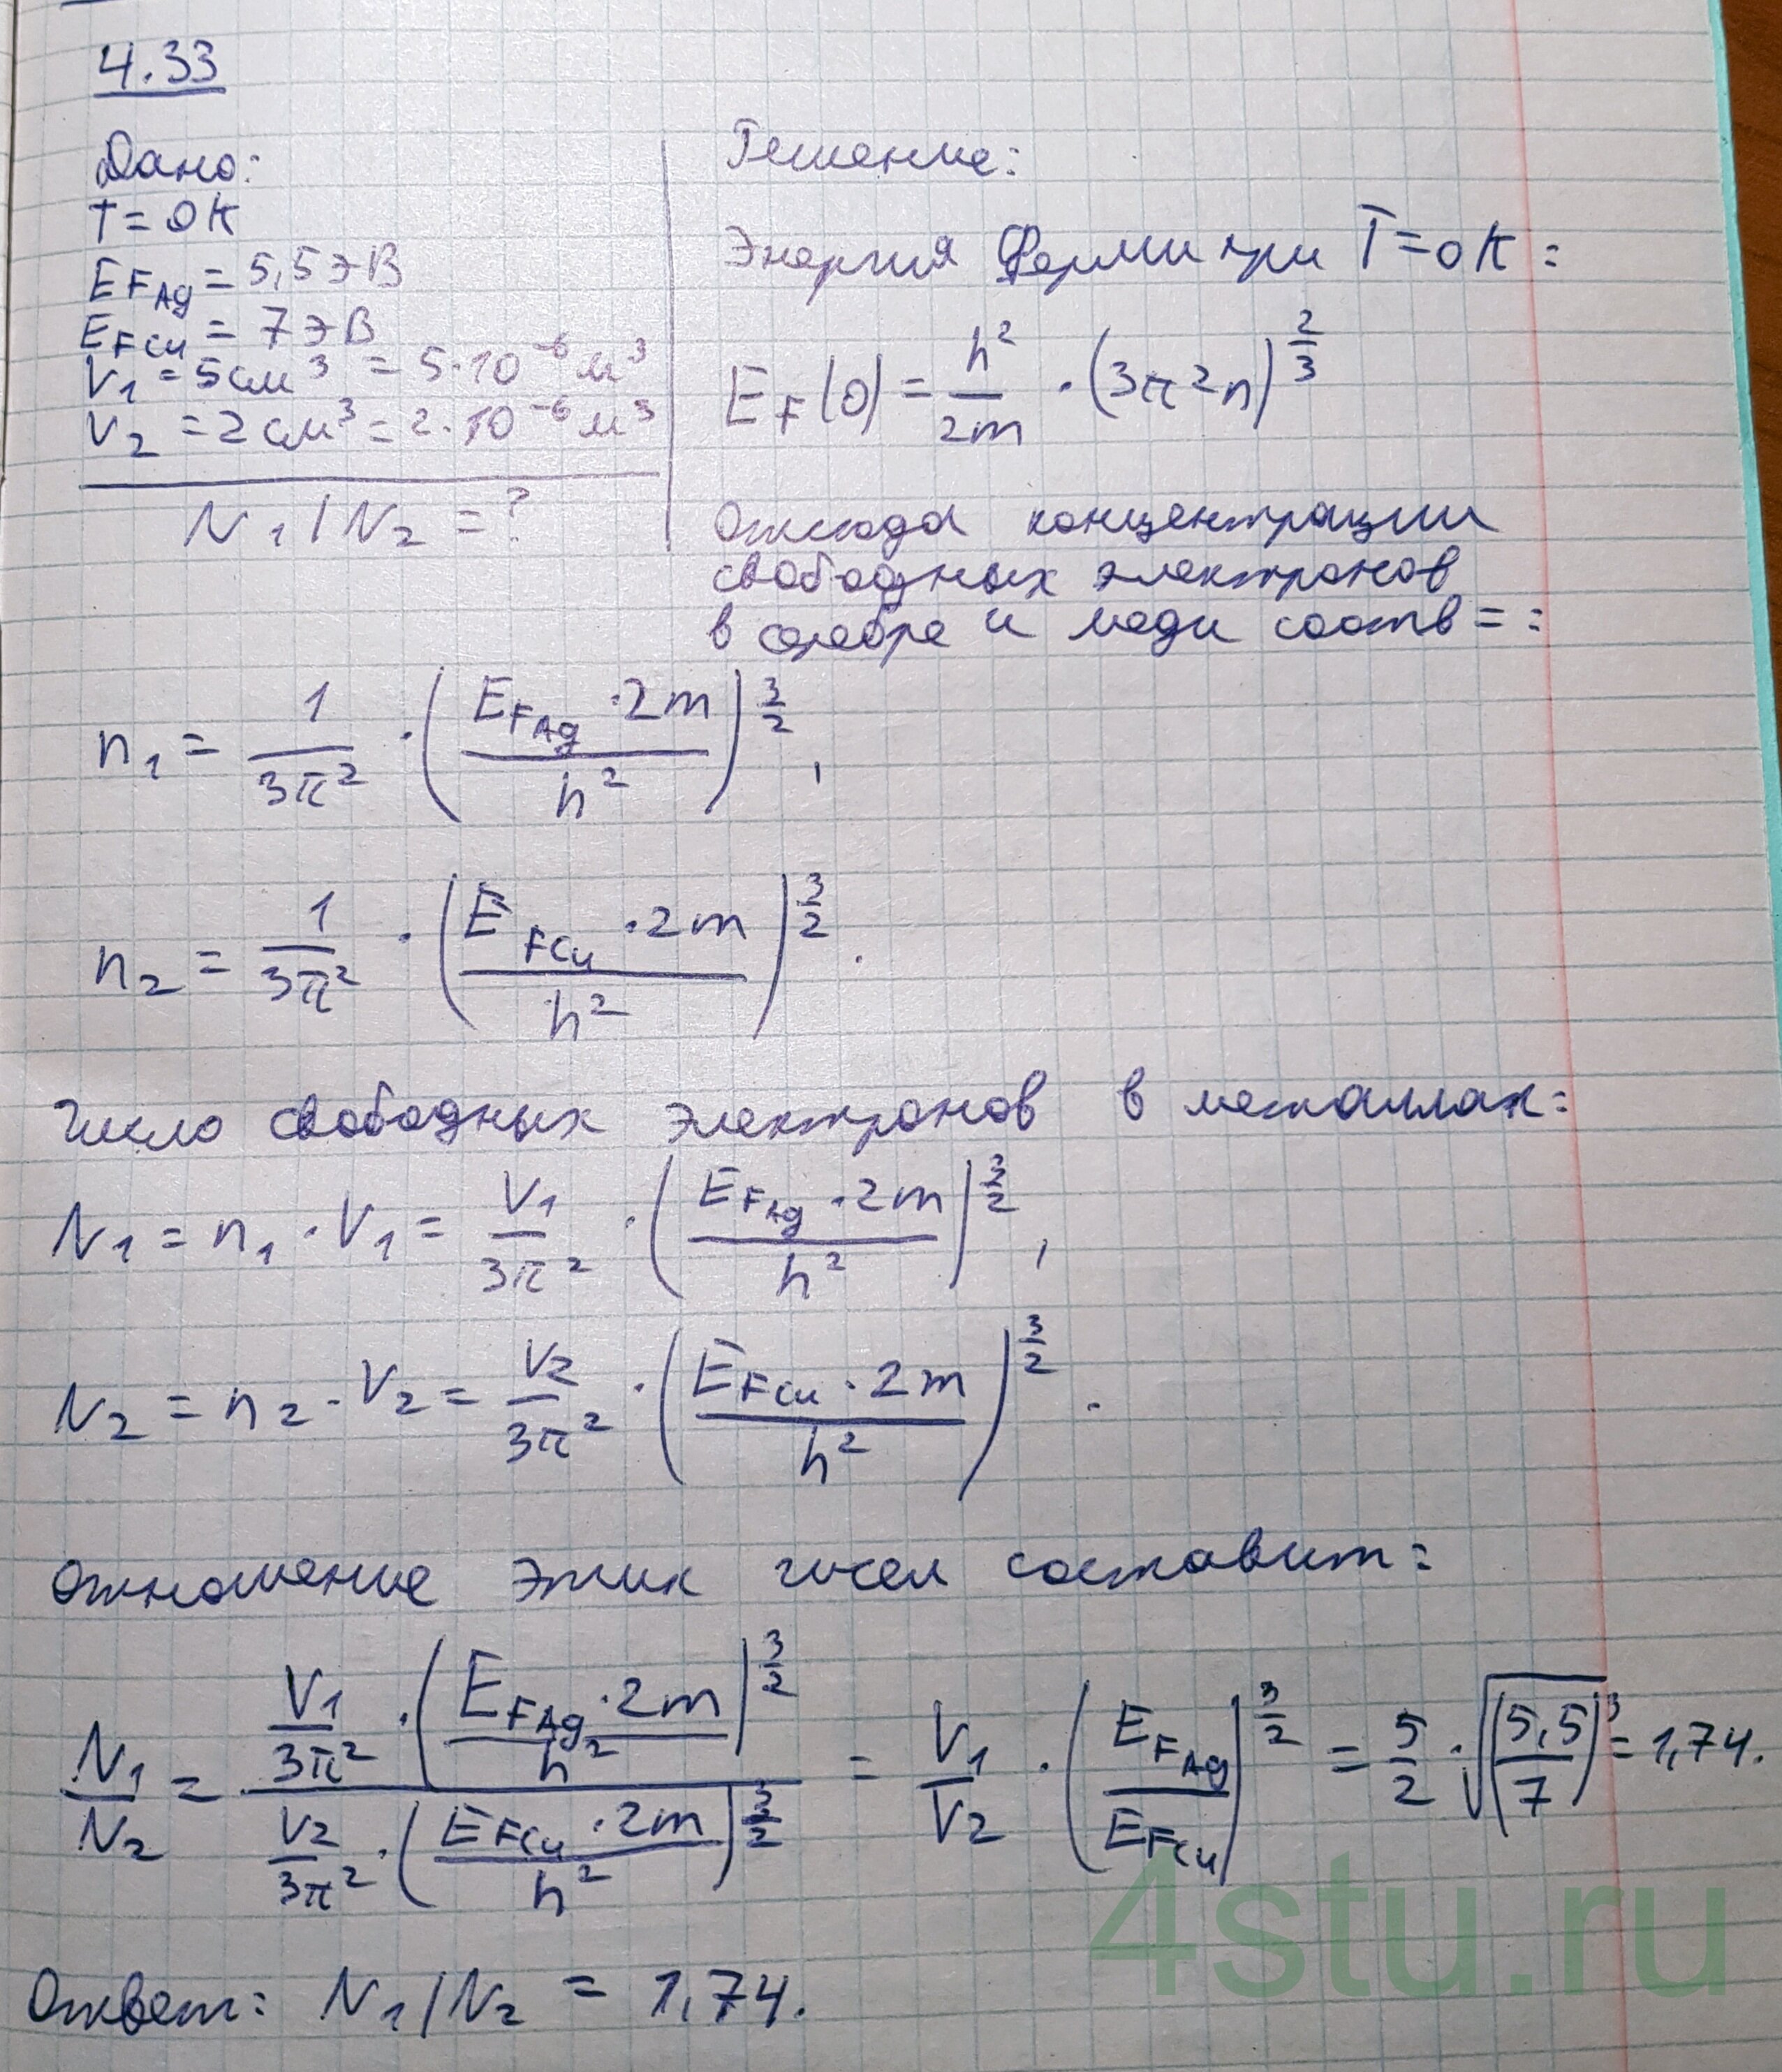 4.33
Дано:
T = 0 К
E_FAg = 5,5 эВ
E_FCu = 7 эВ
V₁ = 5 см³ = 5·10⁻⁶ м³
V₂ = 2 см³ = 2·10⁻⁶ м³
N₁/N₂ = ?
Решение:
Энергия Ферми при T = 0 К:
E_F(0) = h²/2m · (3π²n)^(2/3)
Отсюда концентрации
свободных электронов
в серебре и меди соотв = :
n₁ = 1/(3π²) · (E_FAg · 2m / h²)^(3/2),
n₂ = 1/(3π²) · (E_FCu · 2m / h²)^(3/2).
Число свободных электронов в металлах:
N₁ = n₁ · V₁ = V₁/(3π²) · (E_FAg · 2m / h²)^(3/2),
N₂ = n₂ · V₂ = V₂/(3π²) · (E_FCu · 2m / h²)^(3/2).
Отношение этих чисел составит:
N₁/N₂ = (V₁/(3π²) · (E_FAg · 2m / h²)^(3/2)) / (V₂/(3π²) · (E_FCu · 2m / h²)^(3/2)) = V₁/V₂ · (E_FAg / E_FCu)^(3/2) = 5/2 · √(5,5/7)³ = 1,74.
Ответ: N₁/N₂ = 1,74.
4stu.ru